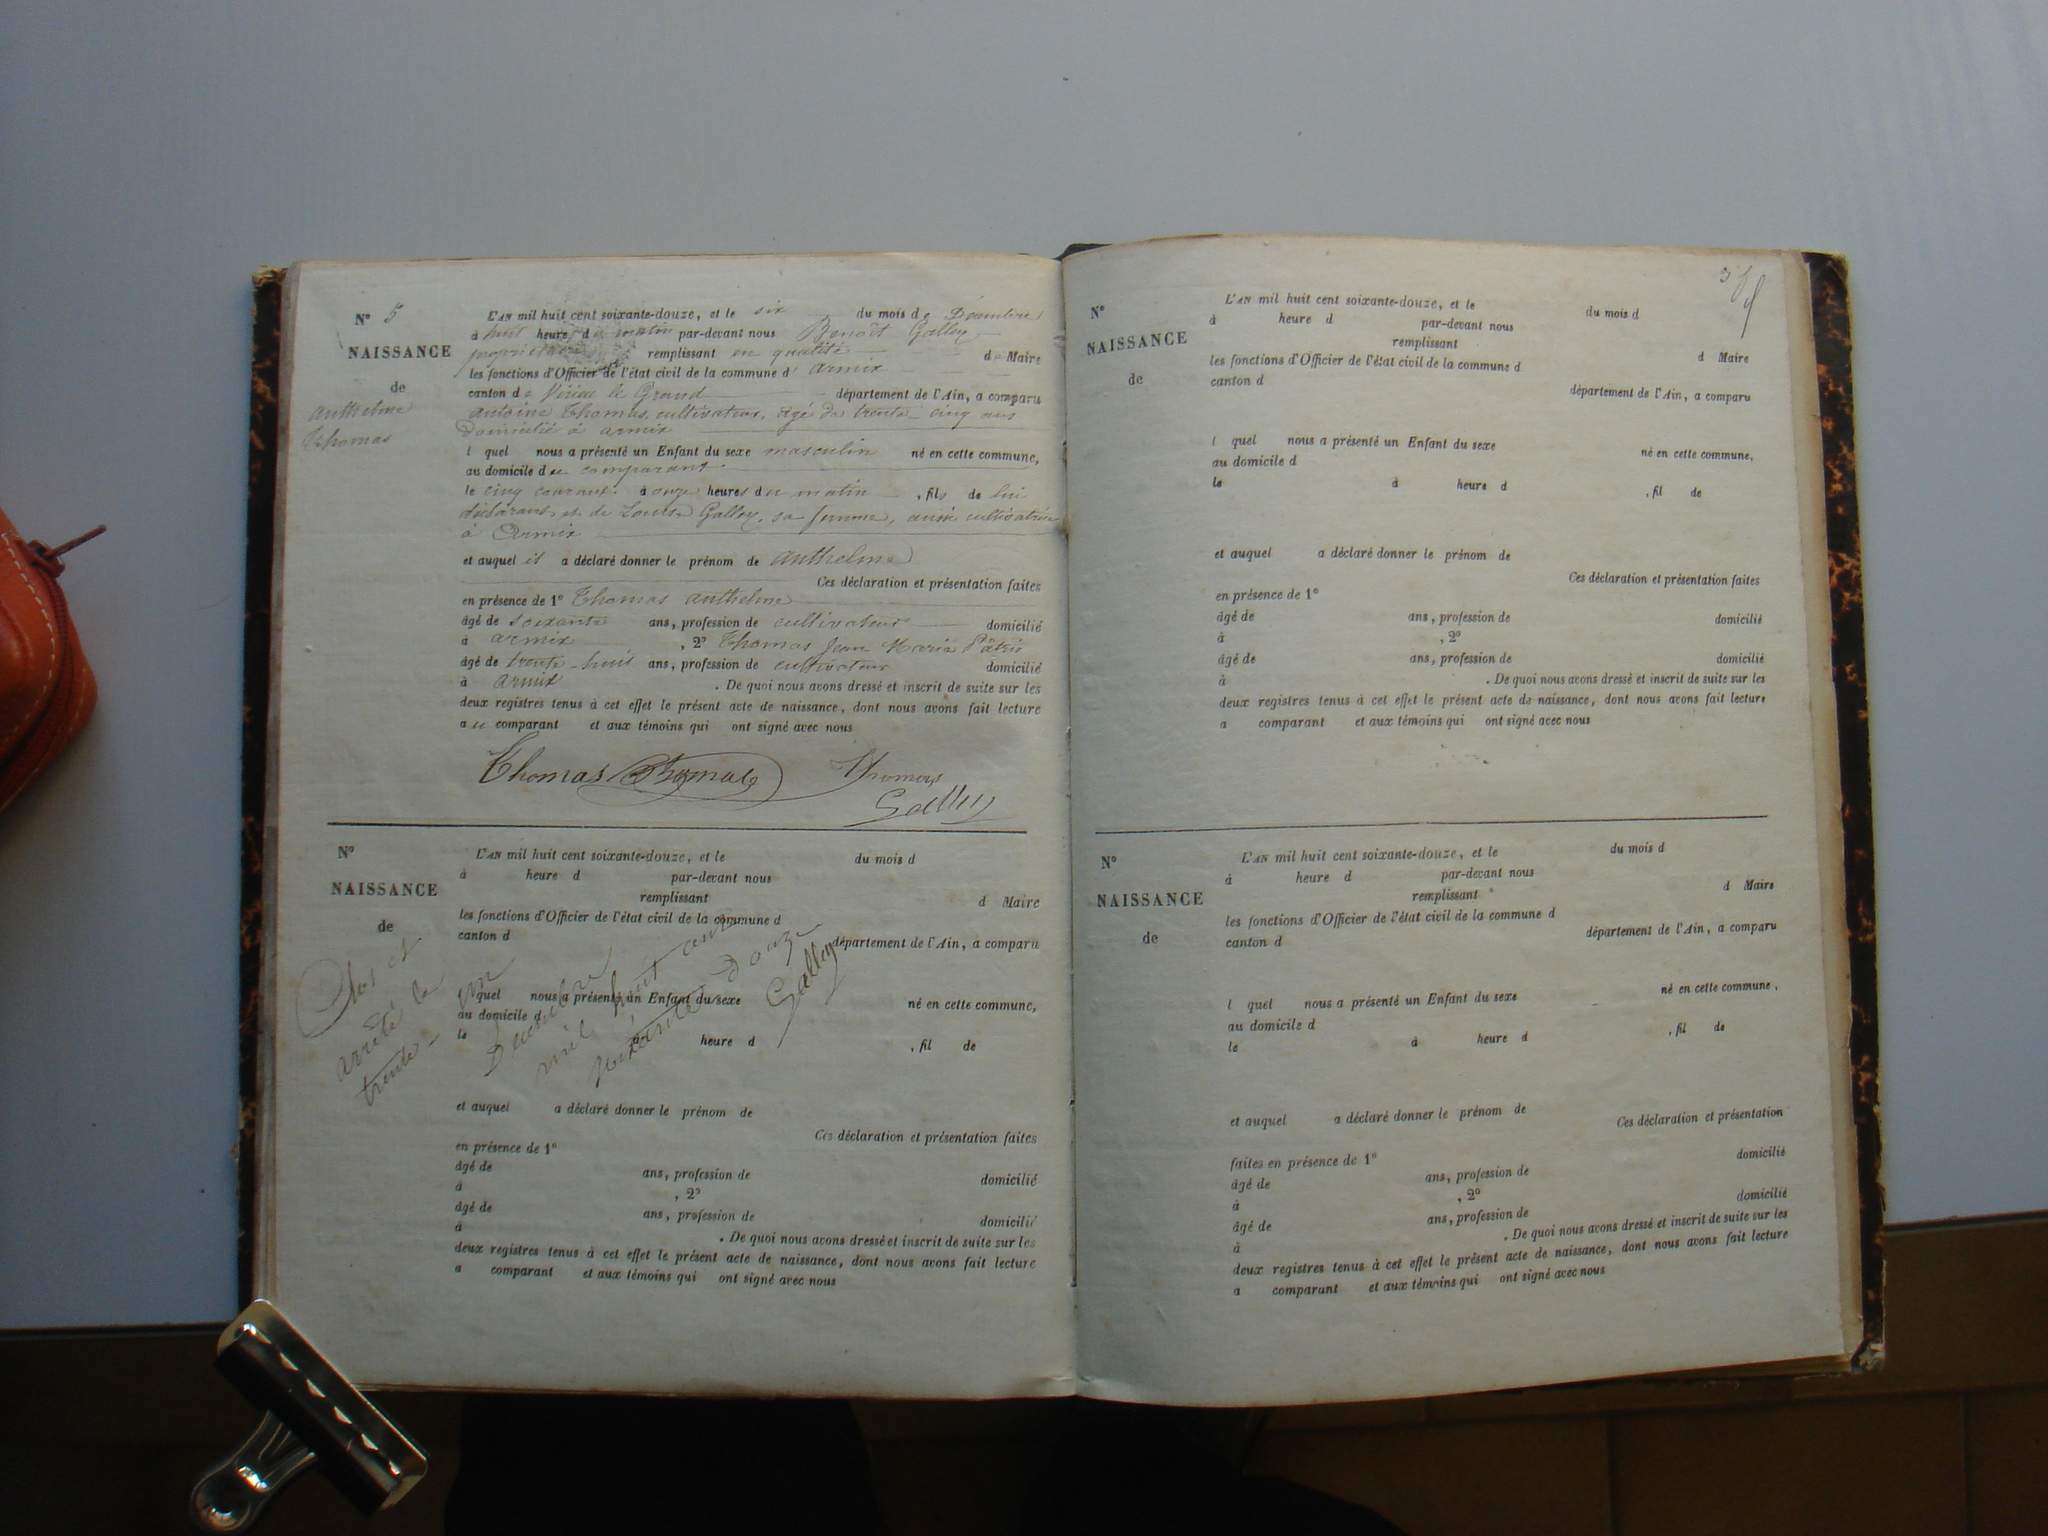 N° 5
NAISSANCE
de
anthelme
Thomas
L'AN mil huit cent soixante-douze, et le six du mois de Décembre
à huit heure du matin par-devant nous Benoît Galley
propriétaire remplissant en qualité de Maire
les fonctions d'Officier de l'état civil de la commune d'armix
canton de Virieu le Grand département de l'Ain, a comparu
antoine Thomas, cultivateur, agé de trente-cinq ans
Domicilié à armix
l quel nous a présenté un Enfant du sexe masculin né en cette commune,
au domicile du comparant.
le cinq courant. à onze heures du matin, fils de lui
déclarant et de Louise Galley, sa femme, aussi cultivatrice
à Armix
et auquel il a déclaré donner le prénom de anthelme
Ces déclaration et présentation faites
en présence de 1° Thomas anthelme
âgé de soixante ans, profession de cultivateur domicilié
à armix, 2° Thomas Jean Marie
âgé de trente-huit ans, profession de cultivateur domicilié
à armix. De quoi nous avons dressé et inscrit de suite sur les
deux registres tenus à cet effet le présent acte de naissance, dont nous avons fait lecture
au comparant et aux témoins qui ont signé avec nous
Thomas Thomas Thomas
Galley
N°
NAISSANCE
de
L'AN mil huit cent soixante-douze, et le du mois d
à heure d par-devant nous
remplissant d Maire
les fonctions d'Officier de l'état civil de la commune d
canton d département de l'Ain, a comparu
l quel nous a présenté un Enfant du sexe né en cette commune,
au domicile d
le à heure d , fil de
Clos et
arrêté le
trente-un
Décembre
mil huit cent
soixante-douze
Galley
et auquel a déclaré donner le prénom de
Ces déclaration et présentation faites
en présence de 1°
âgé de ans, profession de domicilié
à , 2°
âgé de ans, profession de domicilié
à . De quoi nous avons dressé et inscrit de suite sur les
deux registres tenus à cet effet le présent acte de naissance, dont nous avons fait lecture
a comparant et aux témoins qui ont signé avec nous
N°
NAISSANCE
de
L'AN mil huit cent soixante-douze, et le du mois d
à heure d par-devant nous
remplissant d Maire
les fonctions d'Officier de l'état civil de la commune d
canton d département de l'Ain, a comparu
l quel nous a présenté un Enfant du sexe né en cette commune,
au domicile d
le à heure d , fil de
et auquel a déclaré donner le prénom de
Ces déclaration et présentation faites
en présence de 1°
âgé de ans, profession de domicilié
à , 2°
âgé de ans, profession de domicilié
à . De quoi nous avons dressé et inscrit de suite sur les
deux registres tenus à cet effet le présent acte de naissance, dont nous avons fait lecture
a comparant et aux témoins qui ont signé avec nous
N°
NAISSANCE
de
L'AN mil huit cent soixante-douze, et le du mois d
à heure d par-devant nous
remplissant d Maire
les fonctions d'Officier de l'état civil de la commune d
canton d département de l'Ain, a comparu
l quel nous a présenté un Enfant du sexe né en cette commune,
au domicile d
le à heure d , fil de
et auquel a déclaré donner le prénom de
Ces déclaration et présentation
faites en présence de 1° domicilié
âgé de ans, profession de
à , 2° domicilié
âgé de ans, profession de
à . De quoi nous avons dressé et inscrit de suite sur les
deux registres tenus à cet effet le présent acte de naissance, dont nous avons fait lecture
a comparant et aux témoins qui ont signé avec nous